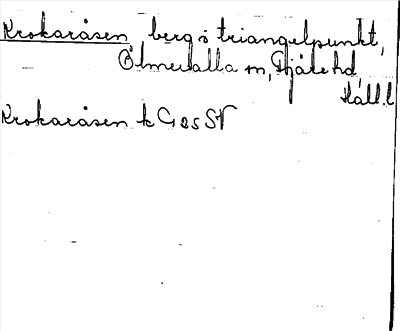 Krokaråsen berg o triangelpunkt,
Ölmevalla sn, Fjäre hd
Hall. l
Krokaråsen k G 25 SV